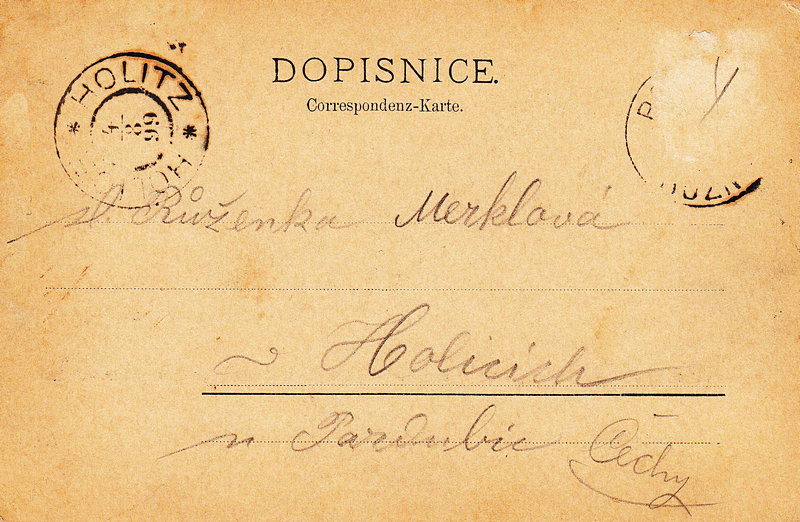 DOPISNICE.
Correspondenz-Karte.
HOLITZ
4/8 99
sl. Růženka Merklová
v Holicích
u Pardubic Čechy